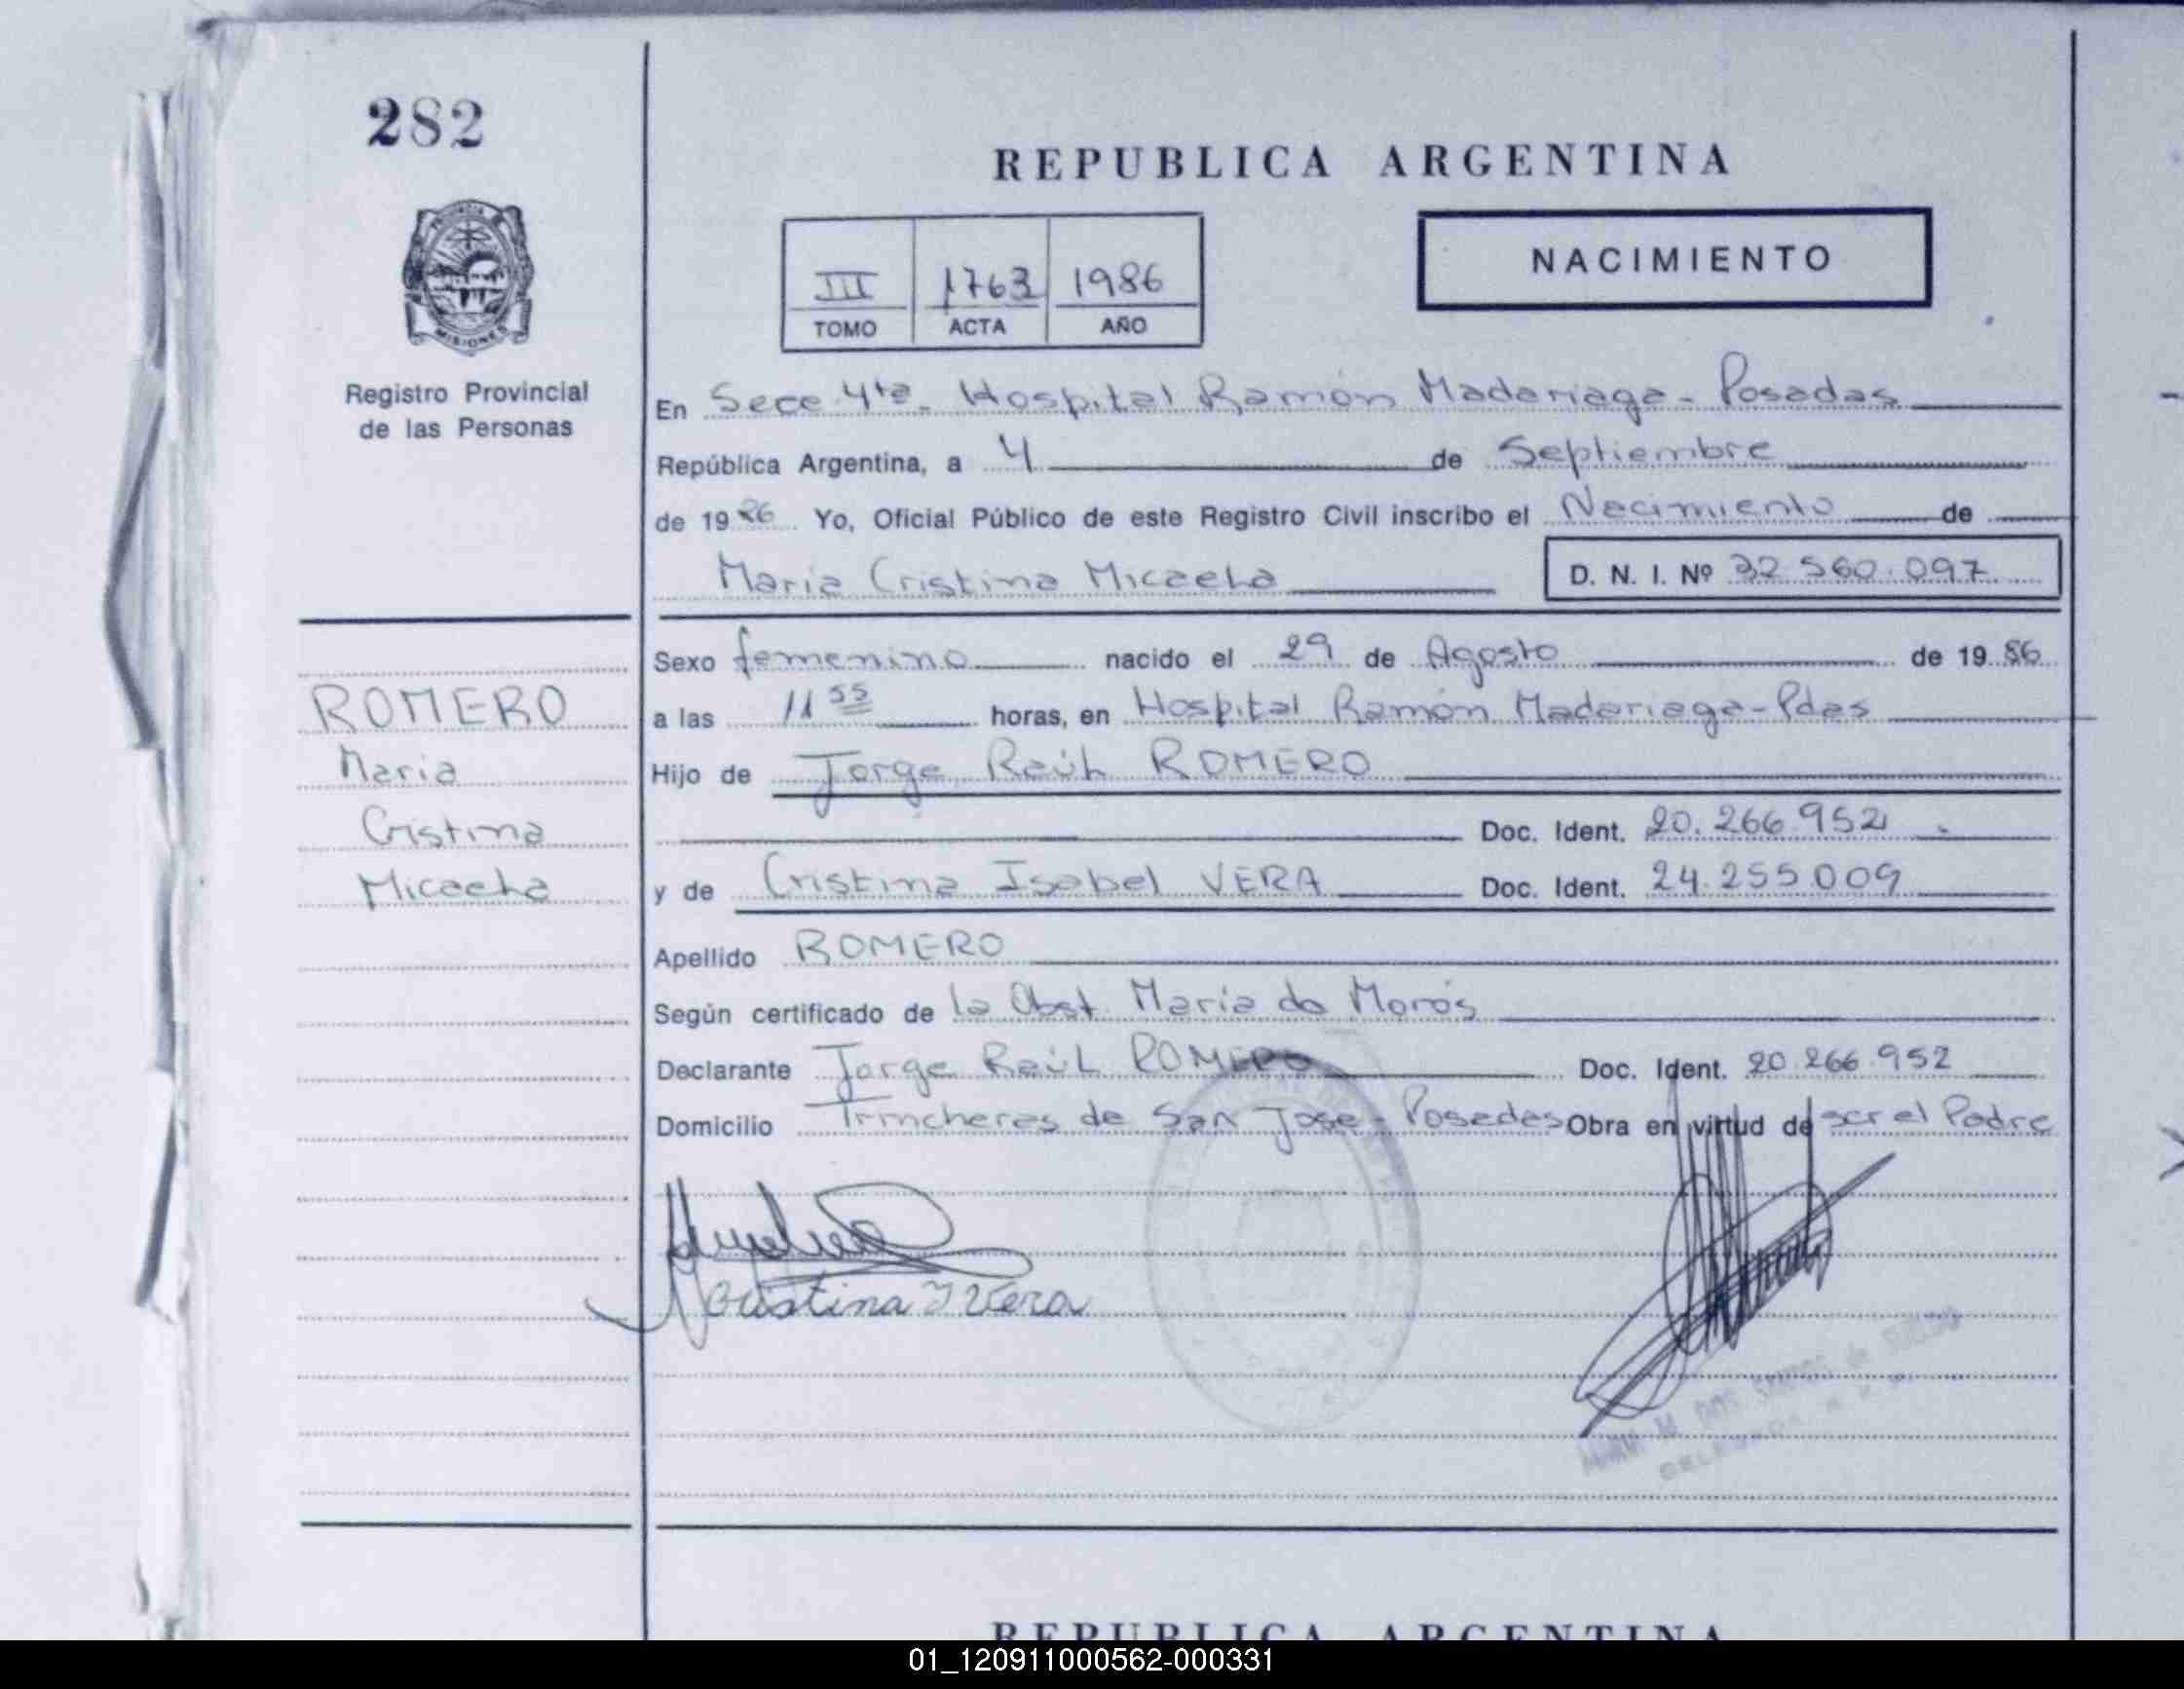 282
REPUBLICA ARGENTINA
III 1763 1986
TOMO ACTA AÑO
NACIMIENTO
PROVINCIA DE
MISIONES
Registro Provincial
de las Personas
En Secc 4ta. Hospital Ramón Madariaga - Posadas
República Argentina, a 4 de Septiembre
de 1986 Yo, Oficial Público de este Registro Civil inscribo el Nacimiento de
Maria Cristina Micaela D. N. I. Nº 32 560.097
Sexo femenino nacido el 29 de Agosto de 1986
a las 11 55 horas, en Hospital Ramón Madariaga - Pdas
Hijo de Jorge Raúl ROMERO
Doc. Ident. 20.266.952
y de Cristina Isabel VERA Doc. Ident. 24.255.009
Apellido ROMERO
Según certificado de la Obst. Maria do Morós
Declarante Jorge Raúl ROMERO Doc. Ident. 20.266.952
Domicilio Trincheras de San Jose - Posadas Obra en virtud de ser el Padre
ROMERO
Maria
Cristina
Micaela
Cristina I Vera
M. DOS SANTOS de
DELEGADA
REPUBLICA ARGENTINA
01_120911000562-000331